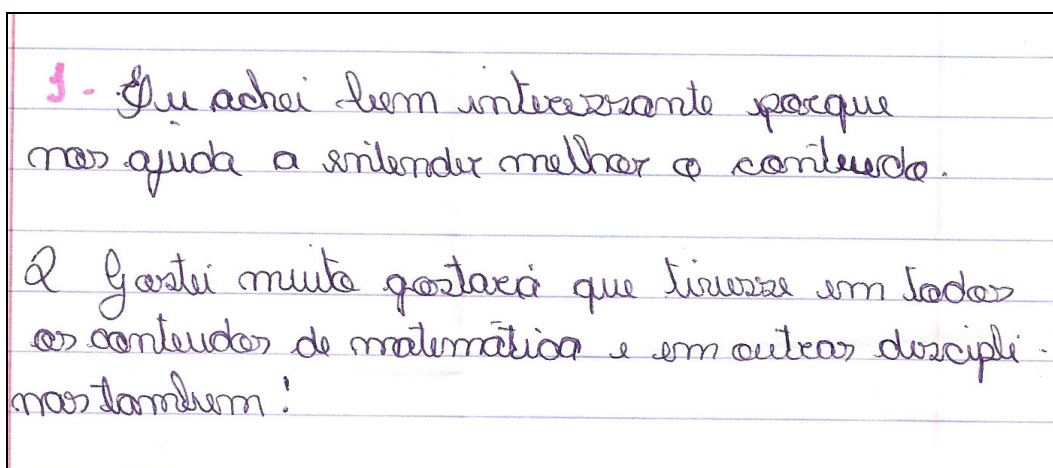 1- Eu achei bem interessante porque
nos ajuda a entender melhor o conteudo.
2 Gostei muito gostará que tivesse em todos
os conteudos de matemática e em outras discipli-
nas tambem!